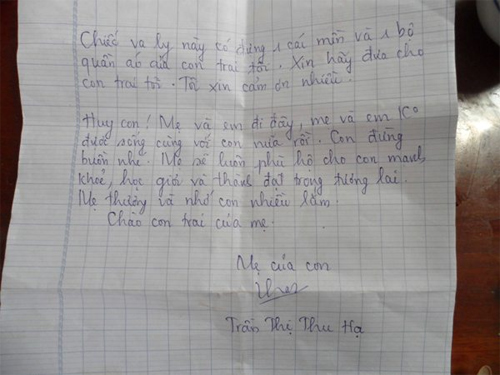 Chiếc va ly này có đựng 1 cái mền và 1 bộ
quần áo của con trai tôi. Xin hãy đưa cho
con trai tôi. Tôi xin cảm ơn nhiều.
Huy con! Mẹ và em đi đây, mẹ và em K°
được sống cùng với con nữa rồi. Con đừng
buồn nhé. Mẹ sẽ luôn phù hộ cho con mạnh
khoẻ, học giỏi và thành đạt trong tương lai.
Mẹ thương và nhớ con nhiều lắm.
Chào con trai của mẹ.
Mẹ của con
Trần Thị Thu Hạ